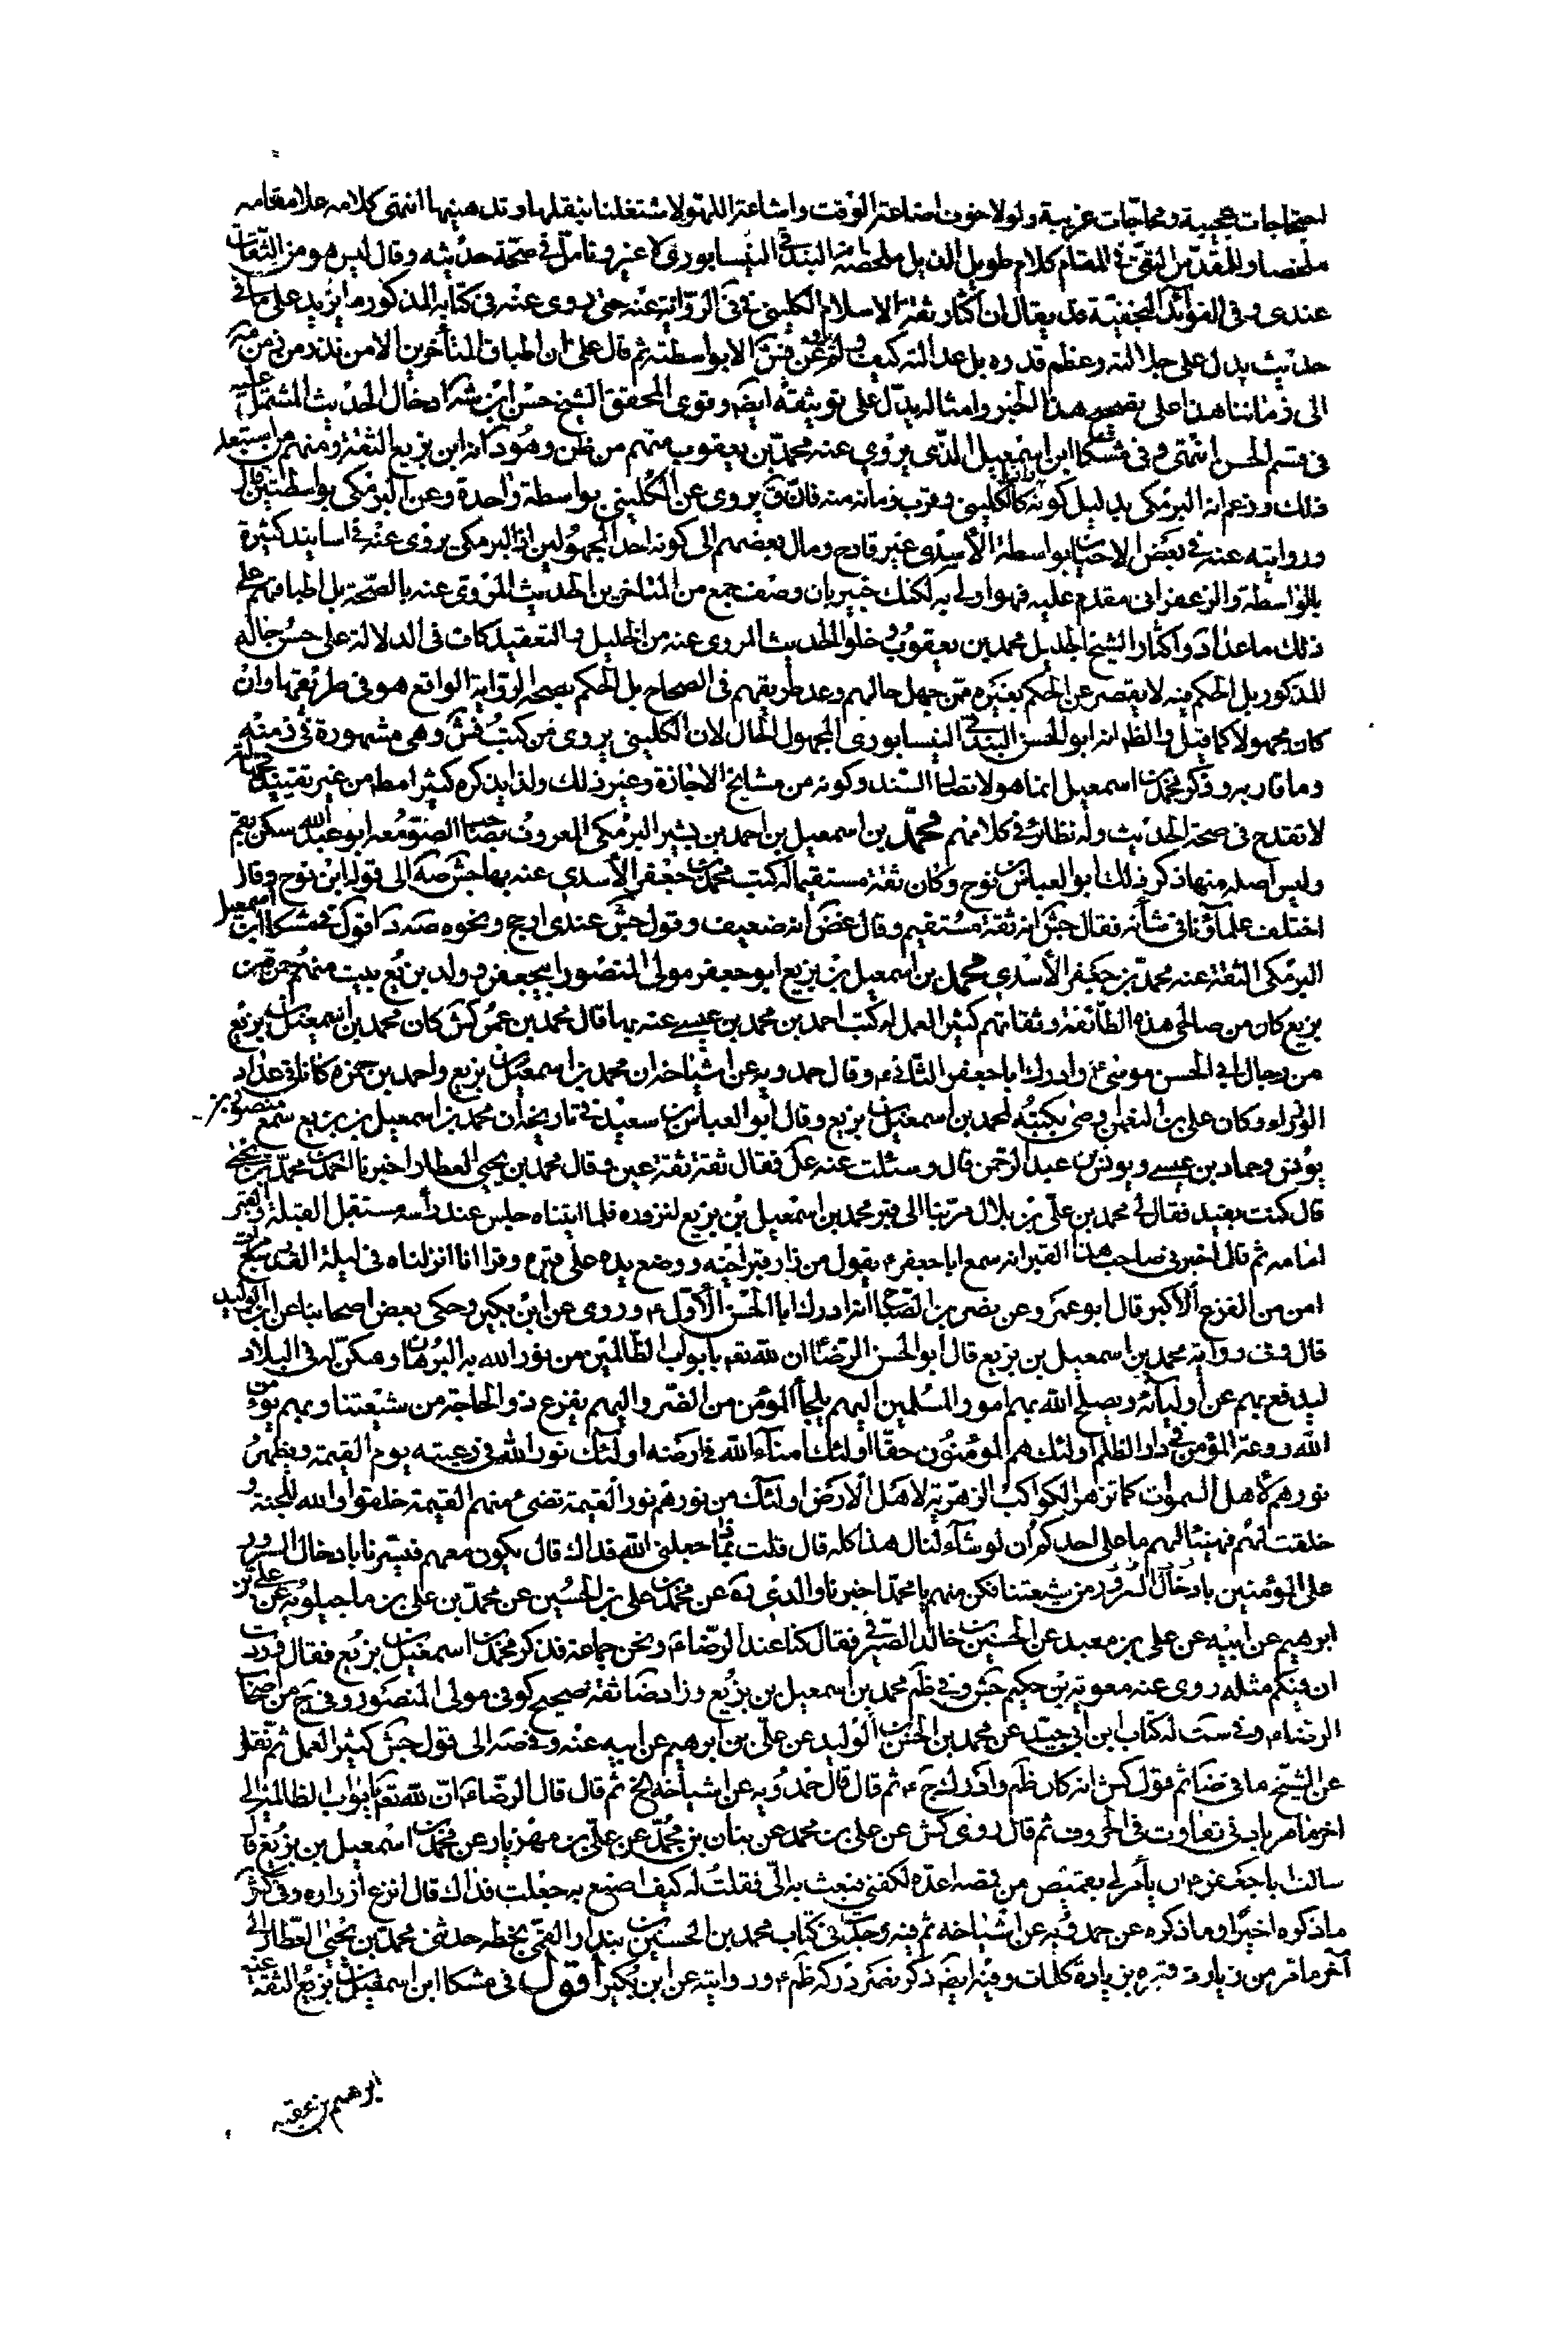 احتجاجات عجيبة ومحاجّات غريبة ولولا خوف اضاعة الوقت واشاعة اللهو لاشتغلنا بنقلها وتدهينها انتهى كلامه علا مقامه
ملخصا وللمقدّس التقي في المقام كلام طويل الذيل ملخصه انه البندقي النيسابوري لا غير وتأمّل في صحّة حديثه وقال ليس هو من الثقات
عندي وفي الفوائد النجفيّة قد يقال ان اكثار ثقة الاسلام الكليني في الرواية عنه حتى روى عنه في كتابه المذكور ما يزيد على مائتي
حديث يدل على جلالته وعظم قدره بل عدالته كيف ولم يرو عن فش الا بواسطته ثم قال على ان اطباق المتأخرين الا من ندر من زمن مه
الى زماننا هذا على تصحيح هذا الخبر وامثاله يدلّ على توثيقه ايضا وقوى المحقق الشيخ حسن ابن شه ادخال الحديث المشتمل عليه
في قسم الحسن انتهى وفي مشكا ابن اسمعيل الذي يروي عنه محمد بن يعقوب منهم من ظن وهو د انه ابن بزيع الثقة ومنهم من استبعد
ذلك وزعم انه البرمكي بدليل كونه رازيا كالكليني وقرب زمانه منه فان ق يروي عن الكليني بواسطة واحدة وعن البرمكي بواسطتين قال
وروايته عنه في بعض الاحيان بواسطة الأسدي غير قادح ومال بعضهم الى كونه احد المجهولين اذ البرمكي يروي عنه في اسانيد كثيرة
بالواسطة والزعفراني مقدم عليه فهو اولى به لكنك خبير بان وصف جمع من المتاخرين الحديث المروي عنه بالصحّة بل اطباقهم على
ذلك ما عدا د واكثار الشيخ الجليل محمد بن يعقوب وخلو الحديث المروي عنه من الخليل والتعقيد كاف في الدلالة على حسن حاله
المذكور بل الحكم فيه لا يقصر عن الحكم بغيره ممن جهل حالهم وعد طريقهم في الصحاح بل الحكم بصحة الرواية الواقع هو في طريقها وان
كان مجهولا كما قيل والظ انه ابو الحسن البندقي النيسابوري المجهول الحال لان الكليني يروي من كتب فش وهي مشهورة في زمنه
وما قاربه وذكر محمد بن اسمعيل انما هو لاتصال السند وكونه من مشايخ الاجازة وغير ذلك ولذا يذكره كثيرا مطلقا من غير تقييد فجهالته
لا تقدح في صحة الحديث وله نظائر في كلامهم محمّد بن اسمعيل بن احمد بن بشير البرمكي المعروف بصاحب الصومعه ابو عبد الله سكن بقم
وليس اصله منها ذكر ذلك ابو العباس بن نوح وكان ثقة مستقيما له كتب محمد بن جعفر الأسدي عنه بها جش صه الى قوله ابن نوح وقال
اختلف علماؤنا في شأنه فقال جش انه ثقة مستقيم وقال غض انه ضعيف وقول جش عندي ارجح ونحوه صه د اقول في مشكا ابن اسمعيل
البرمكي الثقة عنه محمد بن جعفر الأسدي محمد بن اسمعيل بن بزيع ابو جعفر مولى المنصور ابي جعفر وولد بن بزيع بيت منهم حمزة بن
بزيع كان من صالحي هذه الطائفة وثقاتهم كثير العمل له كتب احمد بن محمد بن عيسى عنه بها قال محمد بن عمر كش كان محمد بن اسمعيل بن بزيع
من رجال ابي الحسن موسى ع وادرك ابا جعفر الثاني ع وقال حمدويه عن اشياخه ان محمد بن اسمعيل بن بزيع واحمد بن حمزه كانا في عداد
الوزراء وكان علي بن النعمان وصى بكتبه لمحمد بن اسمعيل بن بزيع وقال ابو العباس بن سعيد في تاريخه ان محمد بن اسمعيل بن بزيع سمع منصور بن
يونس وحماد بن عيسى ويونس بن عبد الرحمن قال وسئلت عنه عل فقال ثقة ثقة عين وقال محمد بن يحيى العطار اخبرنا احمد بن محمد بن يحيى
قال كنت بفيد فقال لي محمد بن علي بن بلال مر بنا الى قبر محمد بن اسمعيل بن بزيع لنزوره فلما اتيناه جلس عند رأسه مستقبل القبلة والقبر
امامه ثم قال اخبرني صاحب هذا القبر انه سمع ابا جعفر ع يقول من زار قبر اخيه ووضع يده على قبره وقرا انا انزلناه في ليلة القدر سبع مرات
امن من الفزع الأكبر قال ابو عمرو عن نصر بن الصباح انه ادرك ابا الحسن الأول ع وروى عن ابن بكير وحكى بعض اصحابنا عن ابن الوليد
قال وفي رواية محمد بن اسمعيل بن بزيع قال ابو الحسن الرضا ع ان لله تعم بأبواب الظالمين من نور الله به البرهان ومكن له في البلاد
ليدفع بهم عن اوليائه ويصلح الله بهم امور المسلمين اليهم يلجأ المؤمن من الضر واليهم يفزع ذو الحاجة من شيعتنا وبهم يؤمن
الله روعة المؤمن في دار الظلم اولئك هم المؤمنون حقا اولئك امناء الله في ارضه اولئك نور الله في رعيته يوم القيمة ويظهر
نورهم لأهل السموات كما تزهر الكواكب الزهرية لاهل الارض اولئك من نورهم نور القيمة تضيء منهم القيمة خلقوا والله للجنة و
خلقت لهم فهنيئا لهم ما على احدكم أن لو شاء لنال هذا كله قال قلت بماذا جعلني الله فداك قال يكون معهم فيسرنا بادخال السرور
على المؤمنين بادخال السرور من شيعتنا فكن منهم يا محمد اخبرنا والدي ره عن محمد بن علي بن الحسين عن محمد بن علي بن ماجيلويه عن علي بن
ابرهيم عن ابيه عن علي بن معبد عن الحسين بن خالد الصيرفي فقال كنا عند الرضا ع ونحن جماعة فذكر محمد بن اسمعيل بن بزيع فقال وددت
ان فيكم مثله روى عنه معوية بن حكيم جش وفي ظم محمد بن اسمعيل بن بزيع وزاد ضا ثقة صحيح كوفي مولى المنصور وفي ج من اصحاب
الرضا ع وفي ست له كتاب ابن ابي جيد عن محمد بن الحسن بن الوليد عن علي بن ابرهيم عن ابيه عنه وفي صه الى قول جش كثير العمل ثم نقل
عن الشيخ ما في ضا ثم قول كش انه كان ظم وادرك ج ع ثم قال قال حمدويه عن اشياخه الخ ثم قال قال الرضا ع انّ لله تعم بأبواب الظالمين الى
اخر ما مر بادنى تفاوت في الحروف ثم قال روى كش عن علي بن محمد عن بنان بن محمد عن علي بن مهزيار عن محمد بن اسمعيل بن بزيع قال
سالت ابا جعفر ع ان يأمر لي بقميص من قمصه اعده لكفني فبعث به الي فقلت له كيف اصنع به جعلت فداك قال انزع ازراره وفي كش
ما ذكره اخيرا وما ذكره عن حمدويه عن اشياخه ثم فيه وجدت في كتاب محمد بن الحسين بن بندار القمي بخطه حدثني محمد بن يحيى العطار الى
آخر ما مر من زيارة قبره بزيادة كلمات وفيه ايضا ذكر نصر دركه ظم ع وروايته عن ابن بكير اقول في مشكا ابن اسمعيل بن بزيع الثقة عنه
ابرهيم بن عقبه